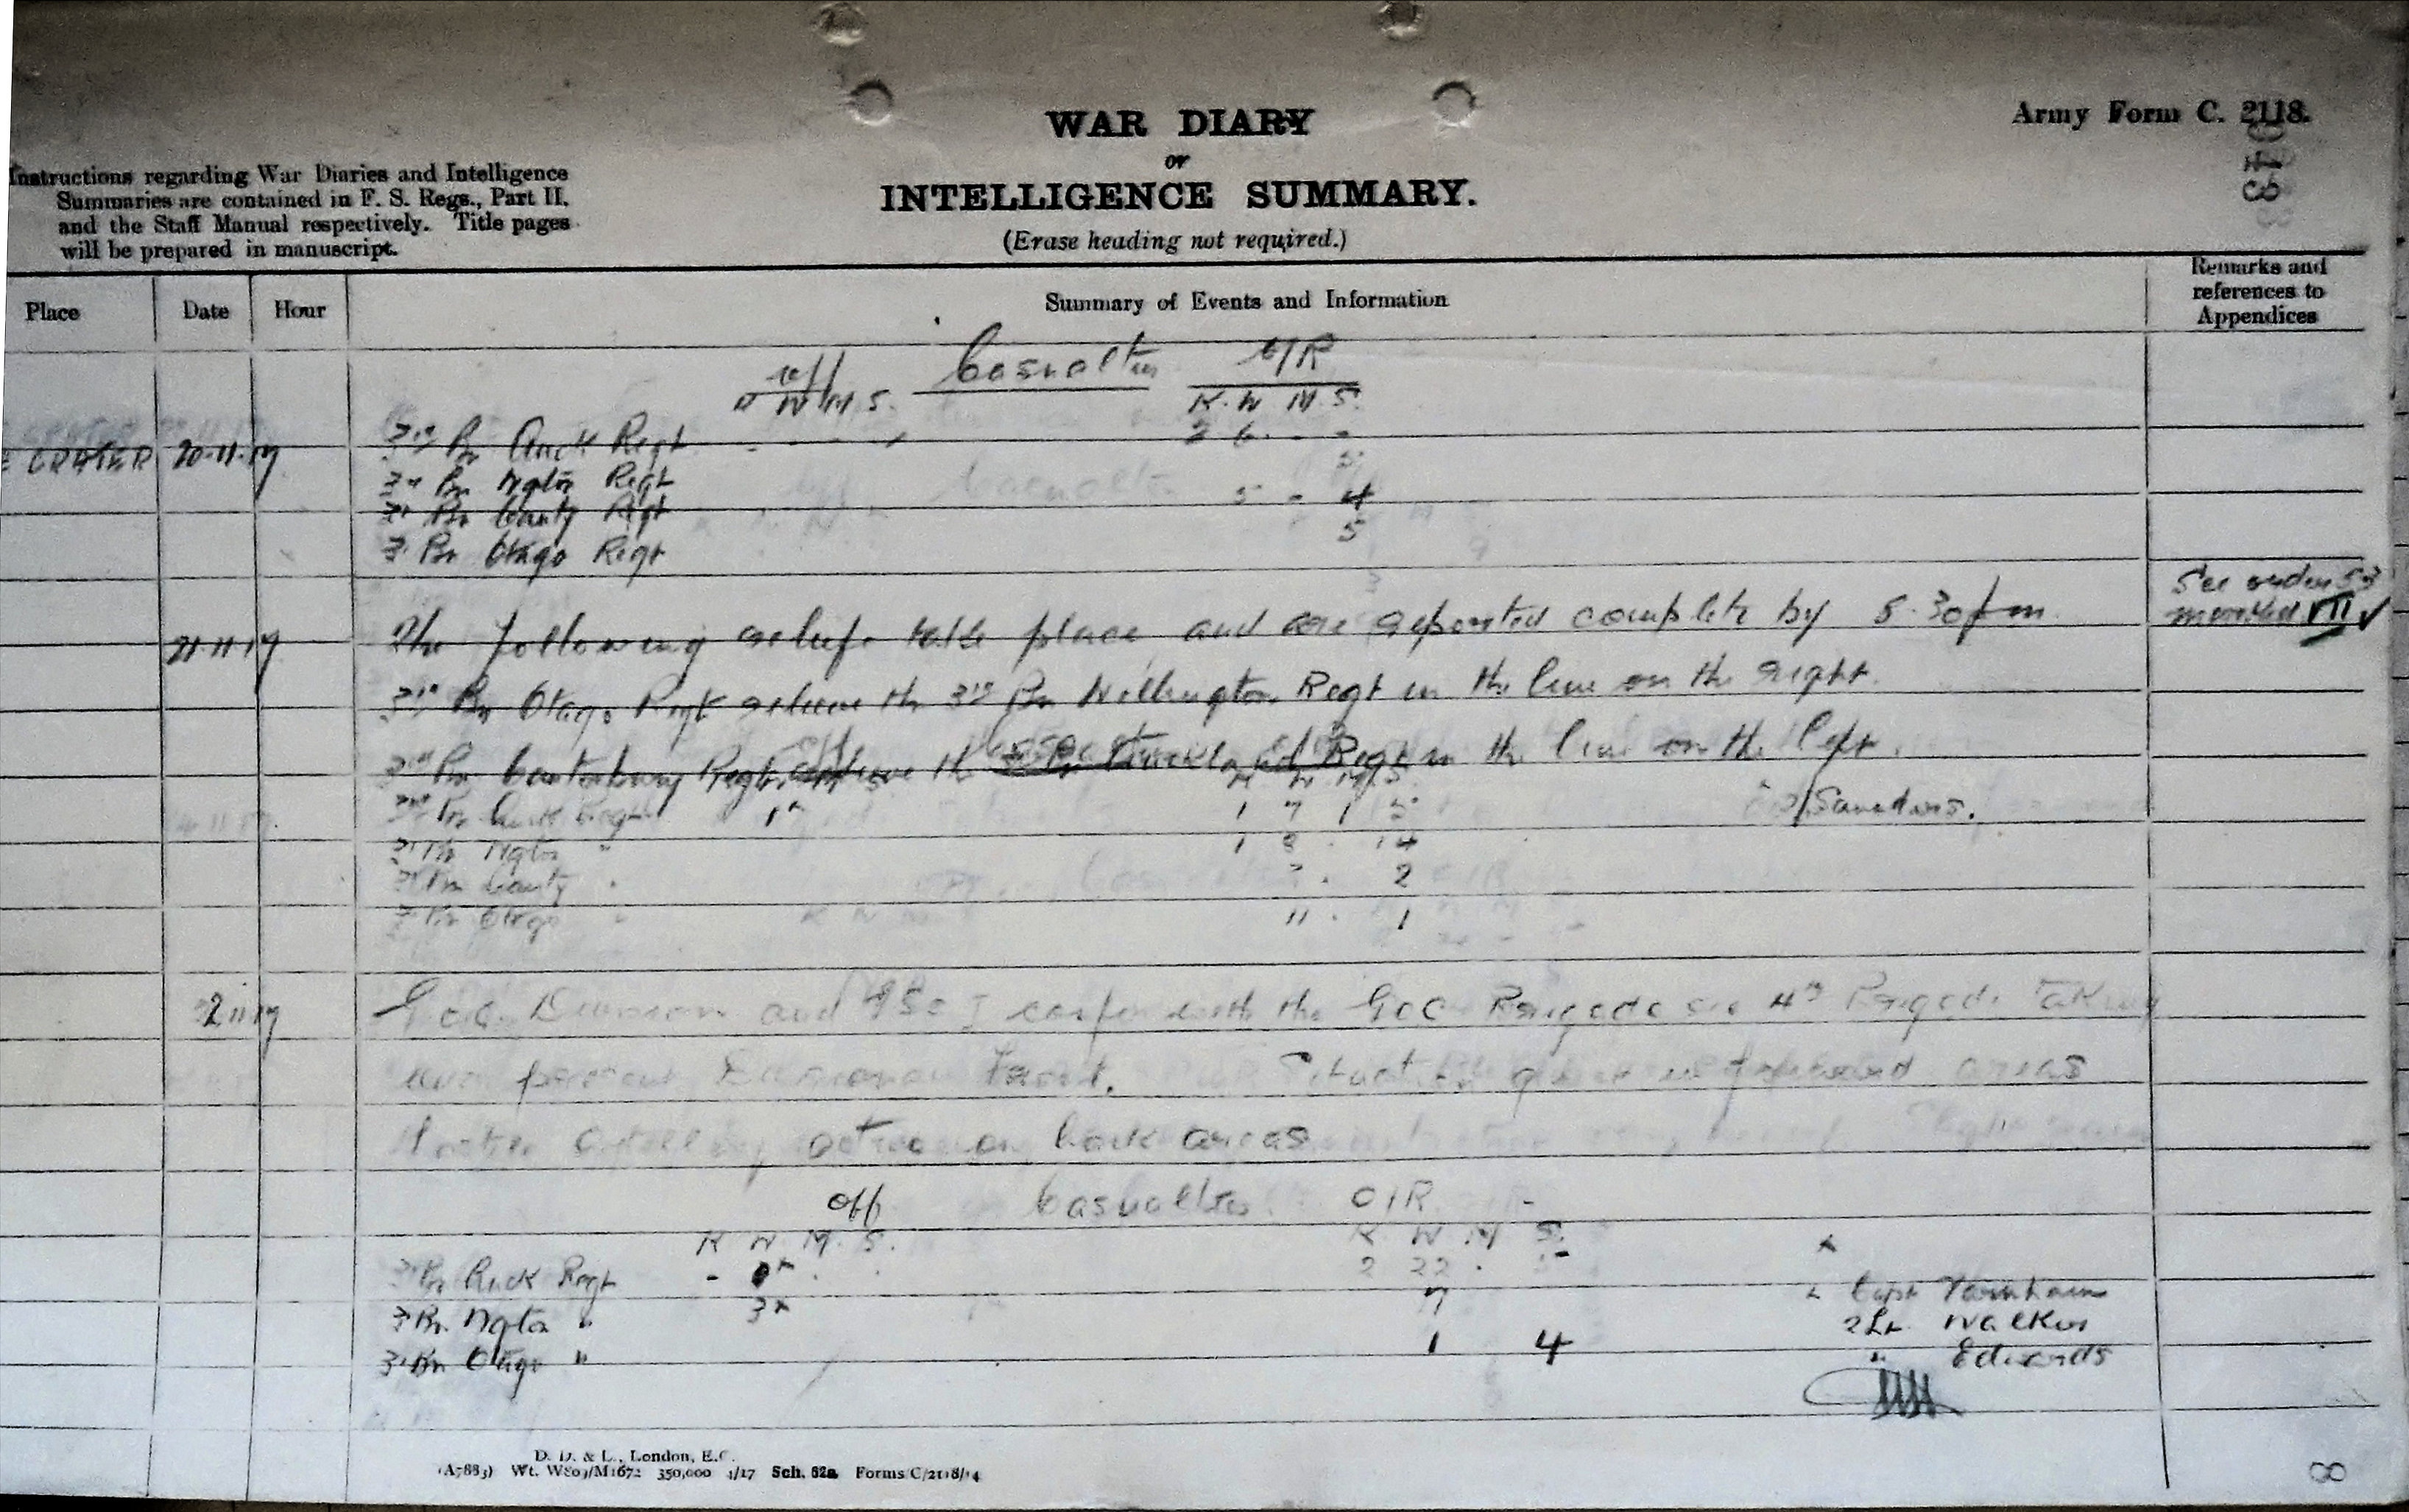 WAR DIARY
or
INTELLIGENCE SUMMARY.
(Erase heading not required.)
Army Form C. 2118.
Instructions regarding War Diaries and Intelligence
Summaries are contained in F. S. Regs., Part II.
and the Staff Manual respectively. Title pages
will be prepared in manuscript.
Place Date Hour Summary of Events and Information Remarks and references to Appendices
Off Casualties O/R
K W M S. K. W M S.
CRATER 20-11-17 3rd Bn Auck Regt 2 6 - -
3rd Bn Ngton Regt 5
3rd Bn Canty Regt 5 - 4
3rd Bn Otago Regt 5
21-11-17 The following reliefs take place and are reported complete by 5.30 pm. See order 53 marked VII
3rd Bn Otago Regt relieve the 3rd Bn Wellington Regt in the line on the right.
3rd Bn Canterbury Regt relieve the 3rd Bn Auckland Regt in the line on the left.
K W M S
3rd Bn Auck Regt 1 x 1 7 1 5 Saunders.
3rd Bn Ngton " 1 8 14
3rd Bn Canty " 2
3rd Bn Otago " 11 . 1
11 17 G.O.C. Division and GSO I confer with the GOC Brigade re 4th Brigade taking
over present Divisional Front. Situation quiet in forward areas
Hostile artillery active on back areas
Off Casualties O/R
K W M. S. K W M S.
3 Bn Auck Regt - x 2 22 . x
3 Bn Ngton " 3x 7 x Capt Varnham
3 Bn Otago " 1 4 2Lt. Walker
" Edwards
D. D. & L., London, E.C.
(A7883) Wt. W809/M1672 350,000 4/17 Sch. 52a Forms/C/2118/14
8